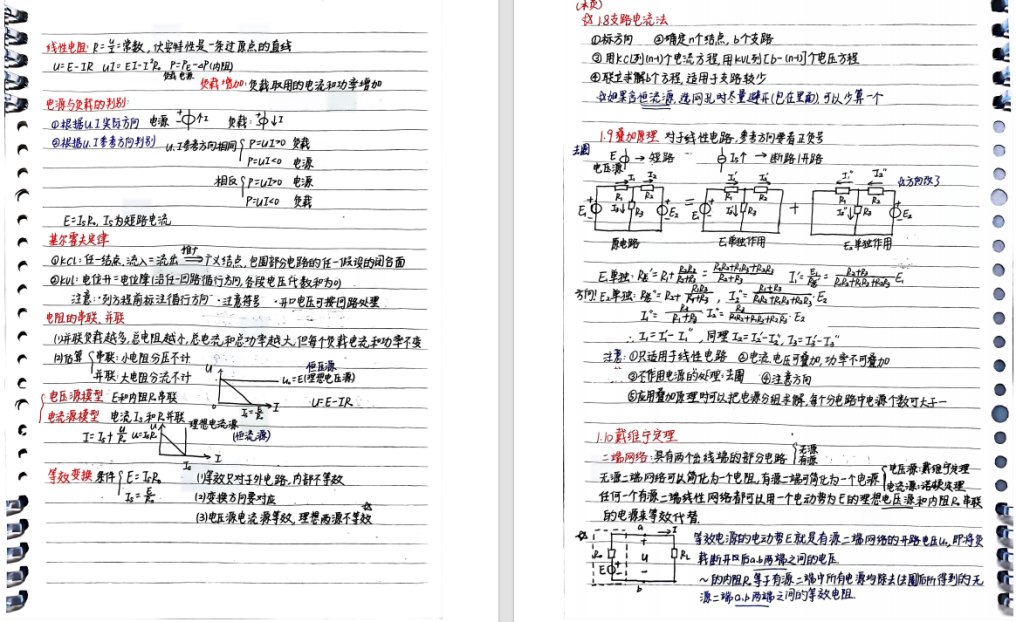 线性电阻: R=U/I=常数, 伏安特性是一条过原点的直线
U=E-IR  UI=EI-I²R₀  P=P_E-ΔP(内阻)
负载 电源
负载增加: 负载取用的电流和功率增加
电源与负载的判别:
①根据U.I实际方向  电源 +↑I  负载: +↓I
②根据U.I参考方向判别  U.I参考方向相同 { P=UI>0 负载
P=UI<0 电源
相反 { P=UI>0 电源
P=UI<0 负载
E=IsR₀, Is为短路电流
基尔霍夫定律
①KCL: 任一结点, 流入=流出 ⟹ 广义结点, 包围部分电路的任一假设的闭合面
推广
②KVL: 电位升=电位降(沿任一回路循行方向, 各段电压代数和为0)
注意: ·列方程前标注循行方向 ·注意符号 ·开口电压可按回路处理
电阻的串联、并联
(1)并联负载越多, 总电阻越小, 总电流和总功率越大, 但每个负载电流和功率不变
(2)估算 { 串联: 小电阻分压不计
并联: 大电阻分流不计
恒压源
U₀=E(理想电压源)
U=E-IR₀
电压源模型  E和内阻R₀串联
电流源模型  电流Is和R₀并联
理想电流源
(恒流源)
I=Is+U/R₀  U=IsR₀
Is
等效变换 条件 { E=IsR₀
Is=E/R₀
(1)等效只对于外电路, 内部不等效
(2)变换方向要对应
(3)电压源电流源等效, 理想两源不等效
(未完)
☆ 1.8支路电流法
①标方向  ②确定n个结点, b个支路
③用KCL列(n-1)个电流方程, 用KVL列[b-(n-1)]个电压方程
④联立求解b个方程, 适用于支路较少
☆如果含恒流源, 选网孔时尽量避开(包在里面), 可以少算一个
1.9叠加原理 对于线性电路, 参考方向要看正负号
去圈
E → 短路  Is↑ → 断路/开路
电压源
I₁ I₂ R₁ R₂ I₃ R₃ E₁ E₂
=
I₁' I₂' R₁ R₂ I₃' R₃ E₁
+
I₁" I₂" R₁ R₂ I₃" R₃ E₂
☆方向改了
原电路  E₁单独作用  E₂单独作用
E₁单独: R总'=R₁+R₂R₃/(R₂+R₃)=(R₁R₂+R₁R₃+R₂R₃)/(R₂+R₃)  I₁'=E₁/R总'=(R₂+R₃)/(R₁R₂+R₁R₃+R₂R₃)·E₁
方向! E₂单独: R总"=R₂+R₁R₃/(R₁+R₃), I₂"=(R₁+R₃)/(R₁R₂+R₁R₃+R₂R₃)·E₂
I₁"=R₃/(R₁+R₃) I₂"=R₃/(R₁R₂+R₁R₃+R₂R₃)·E₂
∴I₁=I₁'-I₁", 同理 I₂=I₂'-I₂", I₃=I₃'-I₃"
注意: ①只适用于线性电路  ②电流, 电压可叠加, 功率不可叠加
③不作用电源的处理: 去圈  ④注意方向
⑤应用叠加原理时可以把电源分组求解, 每个分电路中电源个数可大于一
1.10戴维宁定理
二端网络: 具有两个出线端的部分电路 { 无源
有源
无源二端网络可以简化为一个电阻, 有源二端可简化为一个电源 { 电压源: 戴维宁定理
电流源: 诺顿定理
任何一个有源二端线性网络都可以用一个电动势为E的理想电压源和内阻R₀串联
的电源来等效代替.
a → I
R₀ E + U - R_L
b
等效电源的电动势E就是有源二端网络的开路电压U₀, 即将负
载断开后a.b两端之间的电压.
～的内阻R₀等于有源二端中所有电源均除去(去圈)后所得到的无
源二端a.b两端之间的等效电阻.